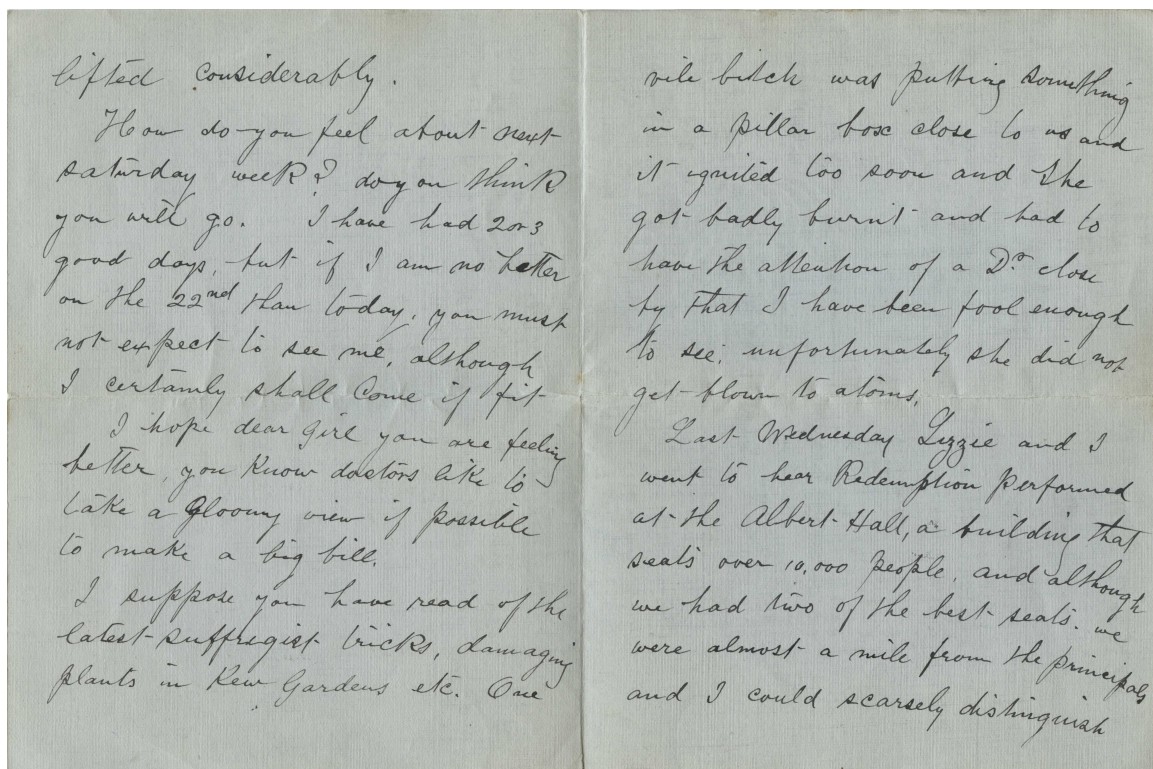 lifted considerably.
How do you feel about next
saturday week? do you think
you will go. I have had 2 or 3
good days, but if I am no better
on the 22nd than today, you must
not expect to see me, although
I certainly shall come if fit
I hope dear girl you are feeling
better, you know doctors like to
take a gloomy view if possible
to make a big bill.
I suppose you have read of the
latest suffregist tricks, damaging
plants in Kew Gardens etc. One
vile bitch was putting something
in a pillar box close to us and
it ignited too soon and she
got badly burnt and had to
have the attention of a Dr. close
by that I have been fool enough
to see, unfortunately she did not
get blown to atoms.
Last Wednesday Lizzie and I
went to hear Redemption performed
at the Albert Hall, a building that
seats over 10,000 people, and although
we had two of the best seats. we
were almost a mile from the principals
and I could scarsely distinguish